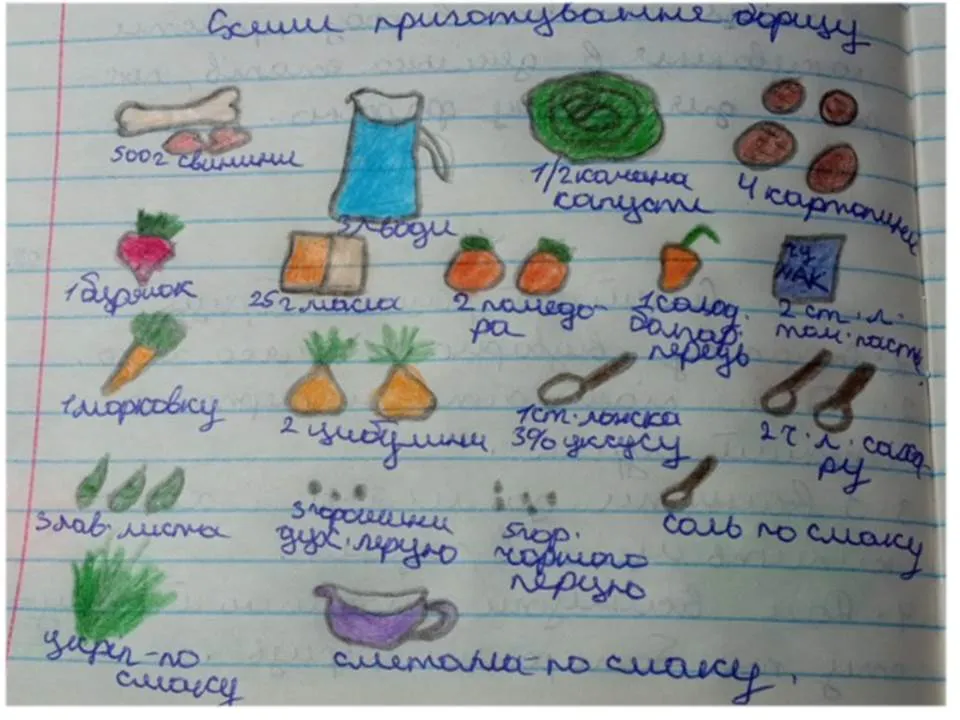 Схеми приготування борщу
500г свинини
3л води
1/2 качана
капусти
4 картоплини
1 бурячок
25г масла
2 помедо-
ра
1 солод.
болгар.
перець
ЧУ
МАК
2 ст. л.
том. пасти
1 морковку
2 цибулини
1 ст. ложка
3% уксусу
2 ч. л. саха-
ру
3 лав. листа
3 горошини
дух. перцю
5 гор.
чорного
перцю
соль по смаку
укріп-по
смаку
сметана-по смаку.